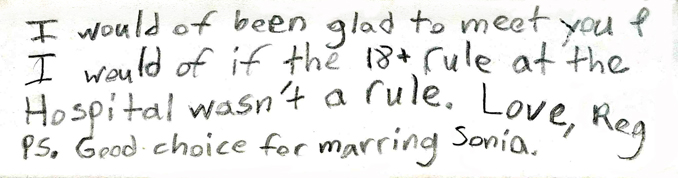 I would of been glad to meet you &
I would of if the 18+ rule at the
Hospital wasn't a rule. Love, Reg
PS. Good choice for marring Sonia.